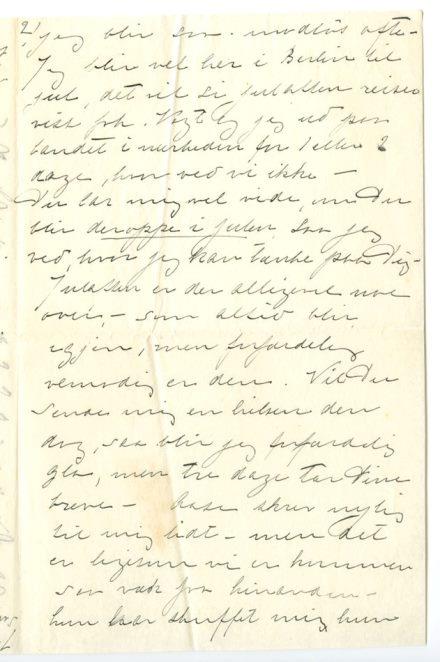 2)
jeg blir saa modløs ofte –
Jeg blir vel her i Berlin til
jul, det vil si julaften reiser
vist frk. Vogt og jeg ud paa
landet i nærheden for 1 eller 2
dage, hvor ved vi ikke –
Du lar mig vel vide, om Du
blir deroppe i julen, saa jeg
ved, hvor jeg kan tænke paa Dig –
Julaften er der alligevel noe
over, – som altid blir
igjen, men forfærdelig
vemodig er den. Vil Du
sende mig en hilsen den
dag, saa blir jeg forfærdelig
gla, men tre dage tar Dine
breve – Aase skrev nylig
til mig lidt – men det
er ligesom vi er kommen
saa væk fra hinanden –
hun har skuffet mig, hun